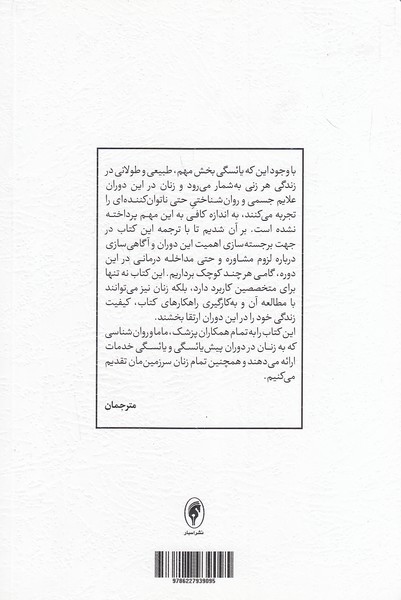 با وجود این که یائسگی بخش مهم، طبیعی و طولانی در
زندگی هر زنی به‌شمار می‌رود و زنان در این دوران
علایم جسمی و روان‌شناختیِ حتی ناتوان‌کننده‌ای را
تجربه می‌کنند، به اندازه کافی به این مهم پرداخته
نشده است. بر آن شدیم تا با ترجمه این کتاب در
جهت برجسته‌سازی اهمیت این دوران و آگاهی‌سازی
درباره لزوم مشاوره و حتی مداخله درمانی در این
دوره، گامی هرچند کوچک برداریم. این کتاب نه تنها
برای متخصصین کاربرد دارد، بلکه زنان نیز می‌توانند
با مطالعه آن و به‌کارگیری راهکارهای کتاب، کیفیت
زندگی خود را در این دوران ارتقا بخشند.
این کتاب را به تمام همکاران پزشک، ماما و روان‌شناسی
که به زنان در دوران پیش‌یائسگی و یائسگی خدمات
ارائه می‌دهند و همچنین تمام زنان سرزمین‌مان تقدیم
می‌کنیم.
مترجمان
نشر اسبار
9786227939095